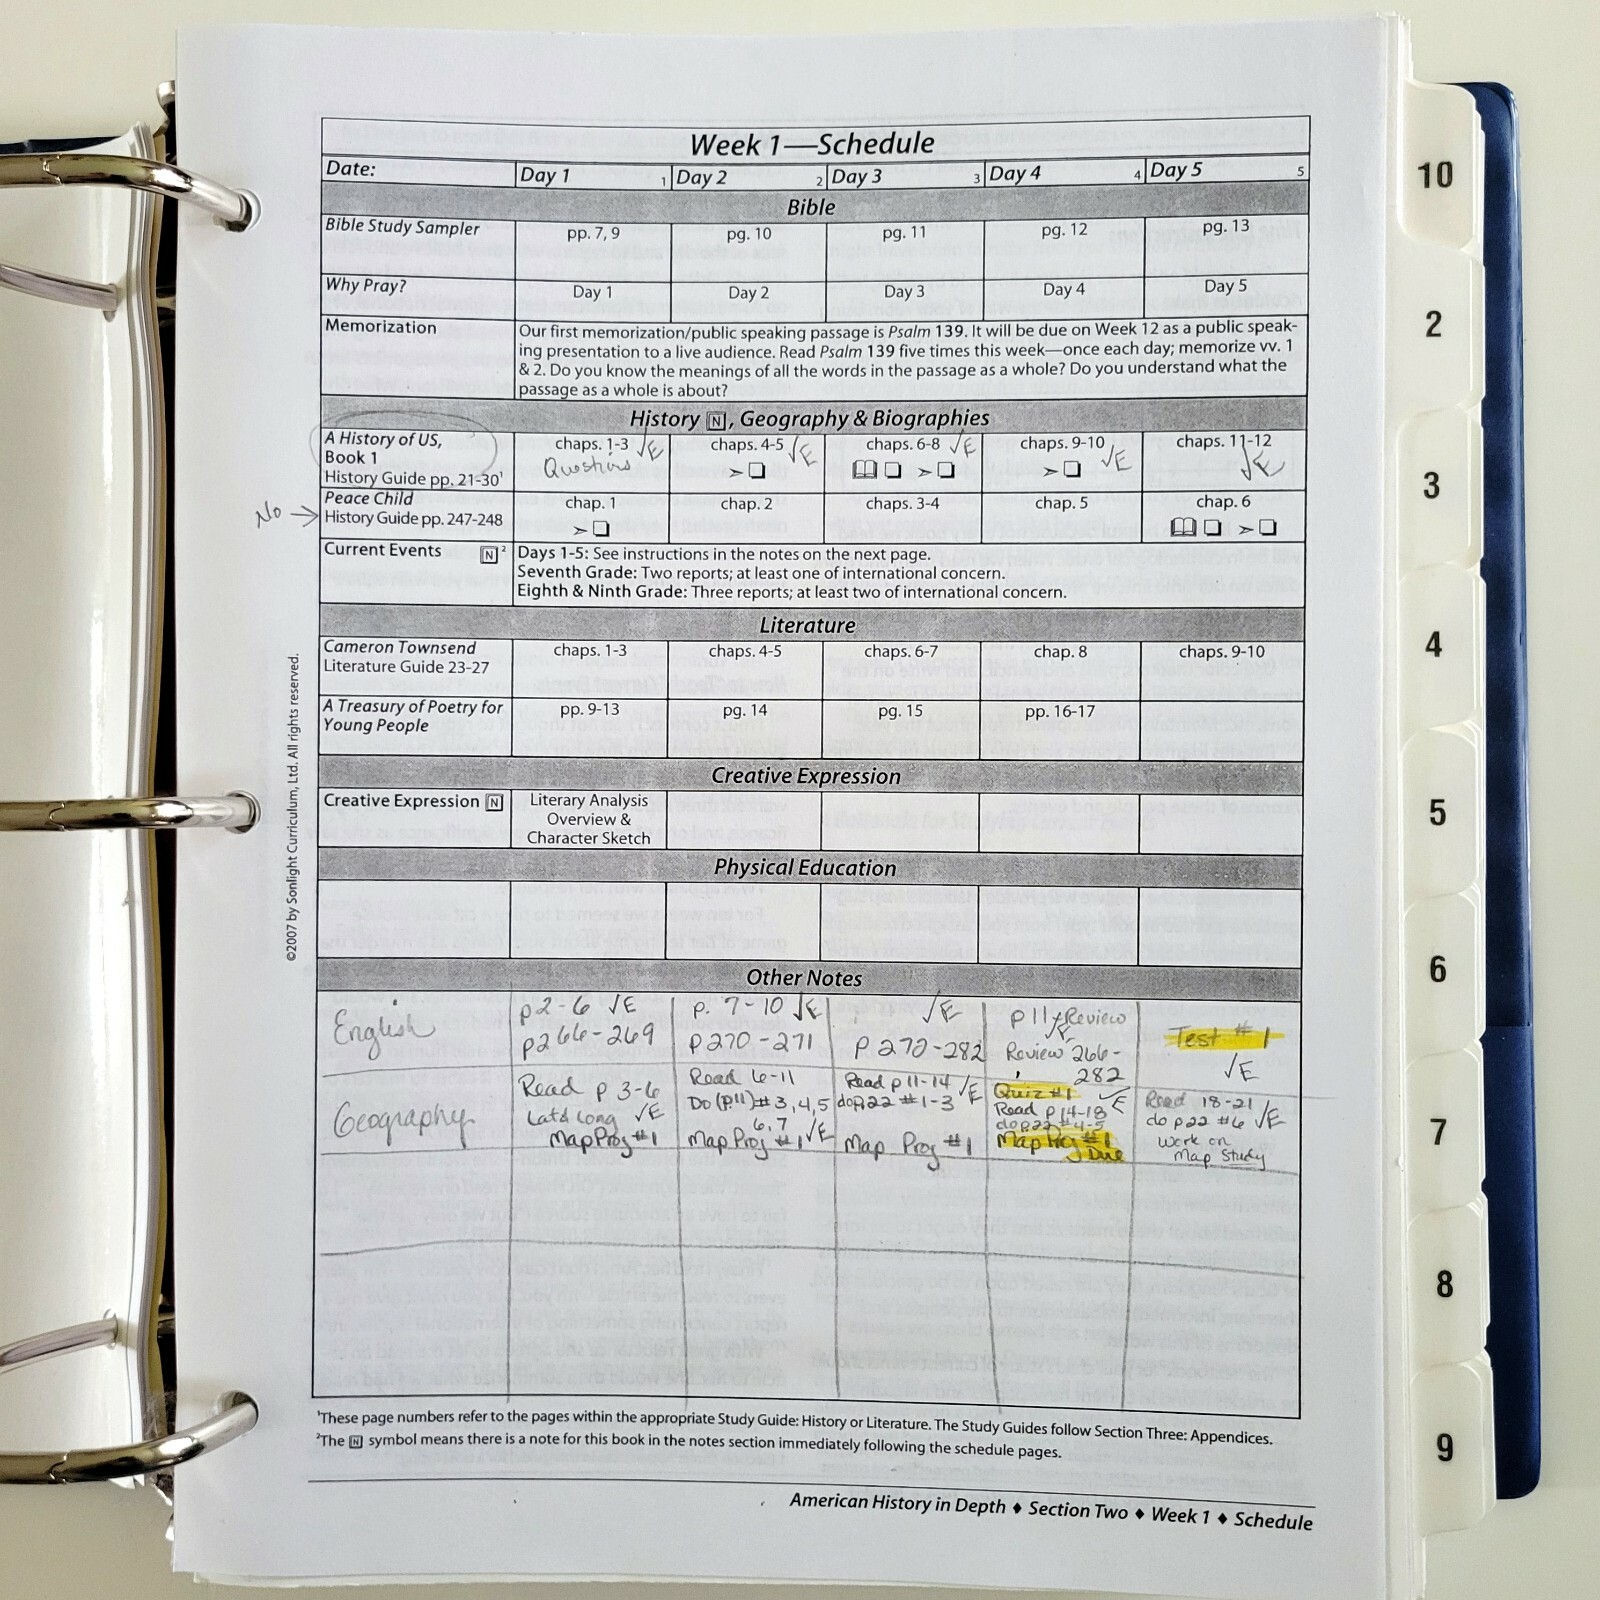 Week 1—Schedule
Date: Day 1 1 Day 2 2 Day 3 3 Day 4 4 Day 5 5
Bible
Bible Study Sampler pp. 7, 9 pg. 10 pg. 11 pg. 12 pg. 13
Why Pray? Day 1 Day 2 Day 3 Day 4 Day 5
Memorization Our first memorization/public speaking passage is Psalm 139. It will be due on Week 12 as a public speak-
ing presentation to a live audience. Read Psalm 139 five times this week—once each day; memorize vv. 1
& 2. Do you know the meanings of all the words in the passage as a whole? Do you understand what the
passage as a whole is about?
History N, Geography & Biographies
A History of US, chaps. 1-3 √E chaps. 4-5 √E chaps. 6-8 √E chaps. 9-10 √E chaps. 11-12 √E
Book 1 Questions
History Guide pp. 21-30¹
Peace Child chap. 1 chap. 2 chaps. 3-4 chap. 5 chap. 6
No → History Guide pp. 247-248
Current Events N ² Days 1-5: See instructions in the notes on the next page.
Seventh Grade: Two reports; at least one of international concern.
Eighth & Ninth Grade: Three reports; at least two of international concern.
Literature
Cameron Townsend chaps. 1-3 chaps. 4-5 chaps. 6-7 chap. 8 chaps. 9-10
Literature Guide 23-27
A Treasury of Poetry for pp. 9-13 pg. 14 pg. 15 pp. 16-17
Young People
Creative Expression
Creative Expression N Literary Analysis
Overview &
Character Sketch
Physical Education
Other Notes
English p2-6 √E p. 7-10 √E √E p11 + Review √E Test #1
p266-269 p270-271 p272-282 Review 266-
282 √E
Geography Read p 3-6 Read 6-11 Read p11-14 √E Quiz #1 √E Read 18-21 √E
Lat & Long √E Do (p.11) #3,4,5 do p22 #1-3 Read p14-18 do p22 #6
6,7 do p22 #4-5 work on
Map Proj #1 Map Proj #1 √E Map Proj #1 Map Proj #1 Map Study
Due
¹These page numbers refer to the pages within the appropriate Study Guide: History or Literature. The Study Guides follow Section Three: Appendices.
²The N symbol means there is a note for this book in the notes section immediately following the schedule pages.
American History in Depth ♦ Section Two ♦ Week 1 ♦ Schedule
©2007 by Sonlight Curriculum, Ltd. All rights reserved.
10
2
3
4
5
6
7
8
9